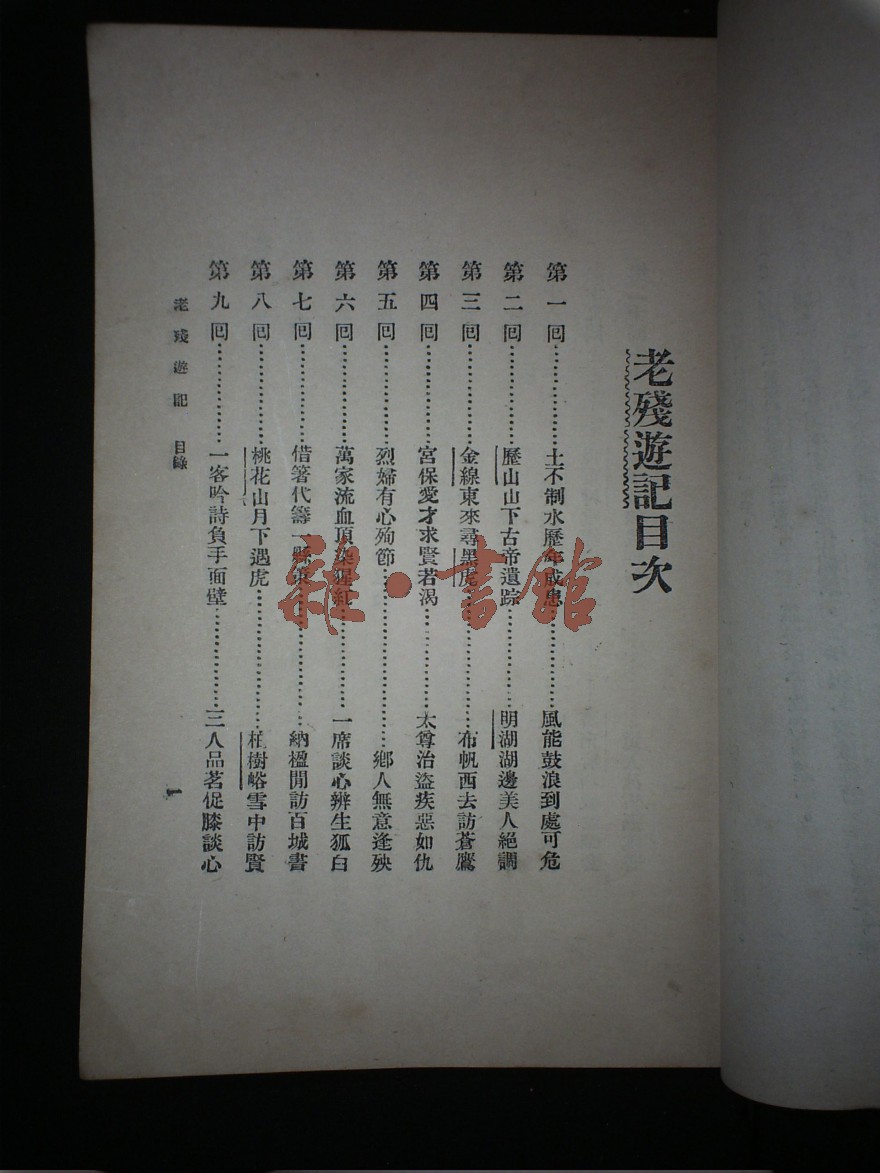 老殘遊記目次
第一回……土不制水歷年成患……風能鼓浪到處可危
第二回……歷山山下古帝遺踪……明湖湖邊美人絕調
第三回……金線東來尋黑虎……布帆西去訪蒼鷹
第四回……宮保愛才求賢若渴……太尊治盜疾惡如仇
第五回……烈婦有心殉節……鄉人無意逢殃
第六回……萬家流血頂染猩紅……一席談心辨生狐白
第七回……借箸代籌一縣策……納楹閒訪百城書
第八回……桃花山月下遇虎……柏樹峪雪中訪賢
第九回……一客吟詩負手面壁……三人品茗促膝談心
老殘遊記 目錄 一
雜·書館